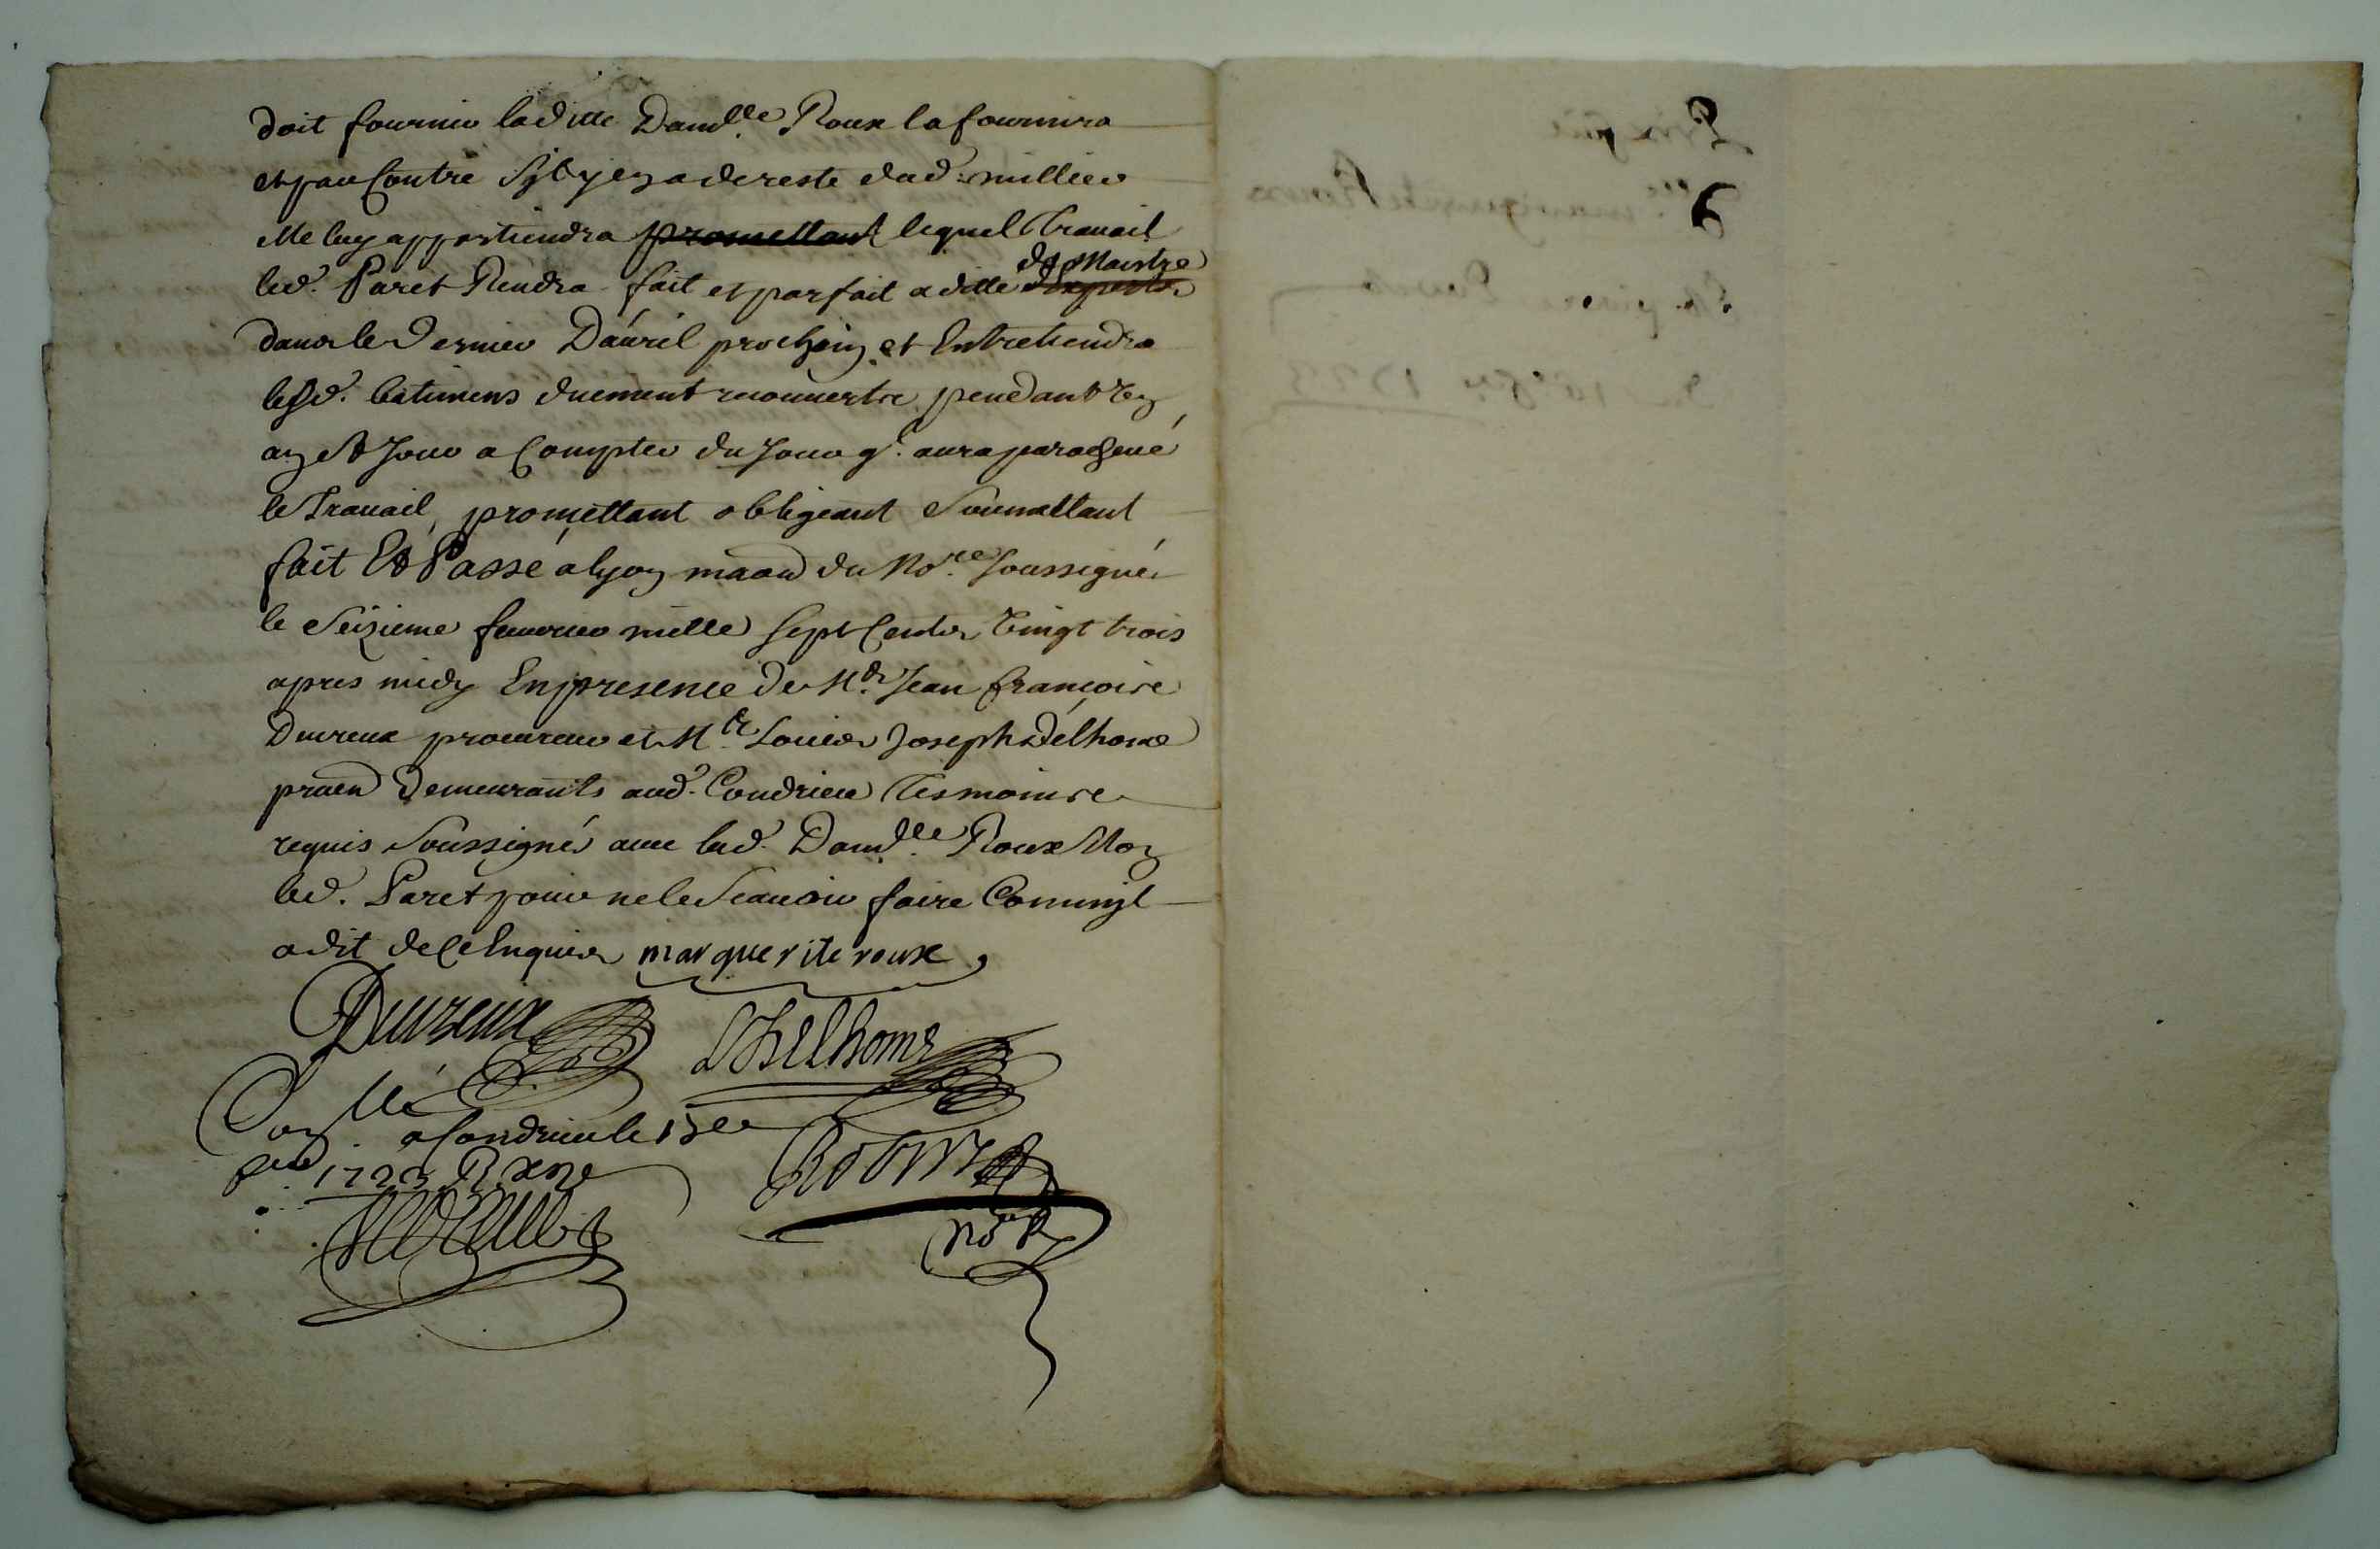 doit fournir laditte Damlle Roux la fournira
et par Contre S'jl y en a de reste dud. millier
elle luy appartiendra promettant lequel Travail
led. Paret Rendra fait et parfait a ditte d'expertz de Maistre
dans le Dernier D'avril prochain et Entretiendra
lesd. batimens duement recouverts pendant Un
an et Jour a Compter du Jour q. aura parachevé
le Travail, promettant obligeant Soumettant
fait Et Passé a lyon maon du Nore soussigné
le Seizieme fevrier mille sept Cents Vingt trois
apres midy En presence de Me Jean françois
Ducreux procureur et Me Louis Joseph Delhome
praen demeurants aud. Condrieu Tesmoins
requis Soussignés avec lad. Damlle Roux Non
led. Paret pour ne le Scavoir faire Comm'jl
a dit de Ce Enquis marguerite roux
Ducreux Delhome
Conllé a Condrieu le
1723
nore R